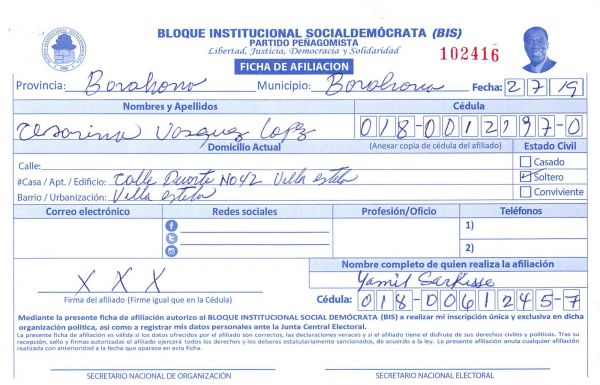 BLOQUE INSTITUCIONAL SOCIALDEMÓCRATA (BIS)
PARTIDO PEÑAGOMISTA
Libertad, Justicia, Democracia y Solidaridad
102416
FICHA DE AFILIACION
Provincia: Barahona Municipio: Barahona Fecha: 2 7 19
Nombres y Apellidos Cédula
Cesarina Vasquez Lopez 018-0012197-0
Domicilio Actual (Anexar copia de cédula del afiliado) Estado Civil
Calle: Casado
#Casa / Apt. / Edificio: Calle Duarte No 42 Villa estela Soltero
Barrio / Urbanización: Villa estela Conviviente
Correo electrónico Redes sociales Profesión/Oficio Teléfonos
1)
2)
Nombre completo de quien realiza la afiliación
X X X Yamil Sarkisse
Firma del afiliado (Firme igual que en la Cédula) Cédula: 018-0061245-7
Mediante la presente ficha de afiliación autorizo al BLOQUE INSTITUCIONAL SOCIAL DEMÓCRATA (BIS) a realizar mi inscripción única y exclusiva en dicha
organización política, así como a registrar mis datos personales ante la Junta Central Electoral.
La presente ficha de afiliación es válida al los datos ofrecidos por el afiliado son correctos, las declaraciones veraces y si el afiliado tiene el disfrute de sus derechos civiles y políticos. Tras su
recepción, sello y firmas autorizadas el afiliado ejercerá todos los derechos y los deberes estatutariamente sancionados, de acuerdo a la ley. La presente afiliación anula cualquier afiliación
realizada con anterioridad a la fecha que aparece en esta ficha.
SECRETARIO NACIONAL DE ORGANIZACIÓN SECRETARIO NACIONAL ELECTORAL